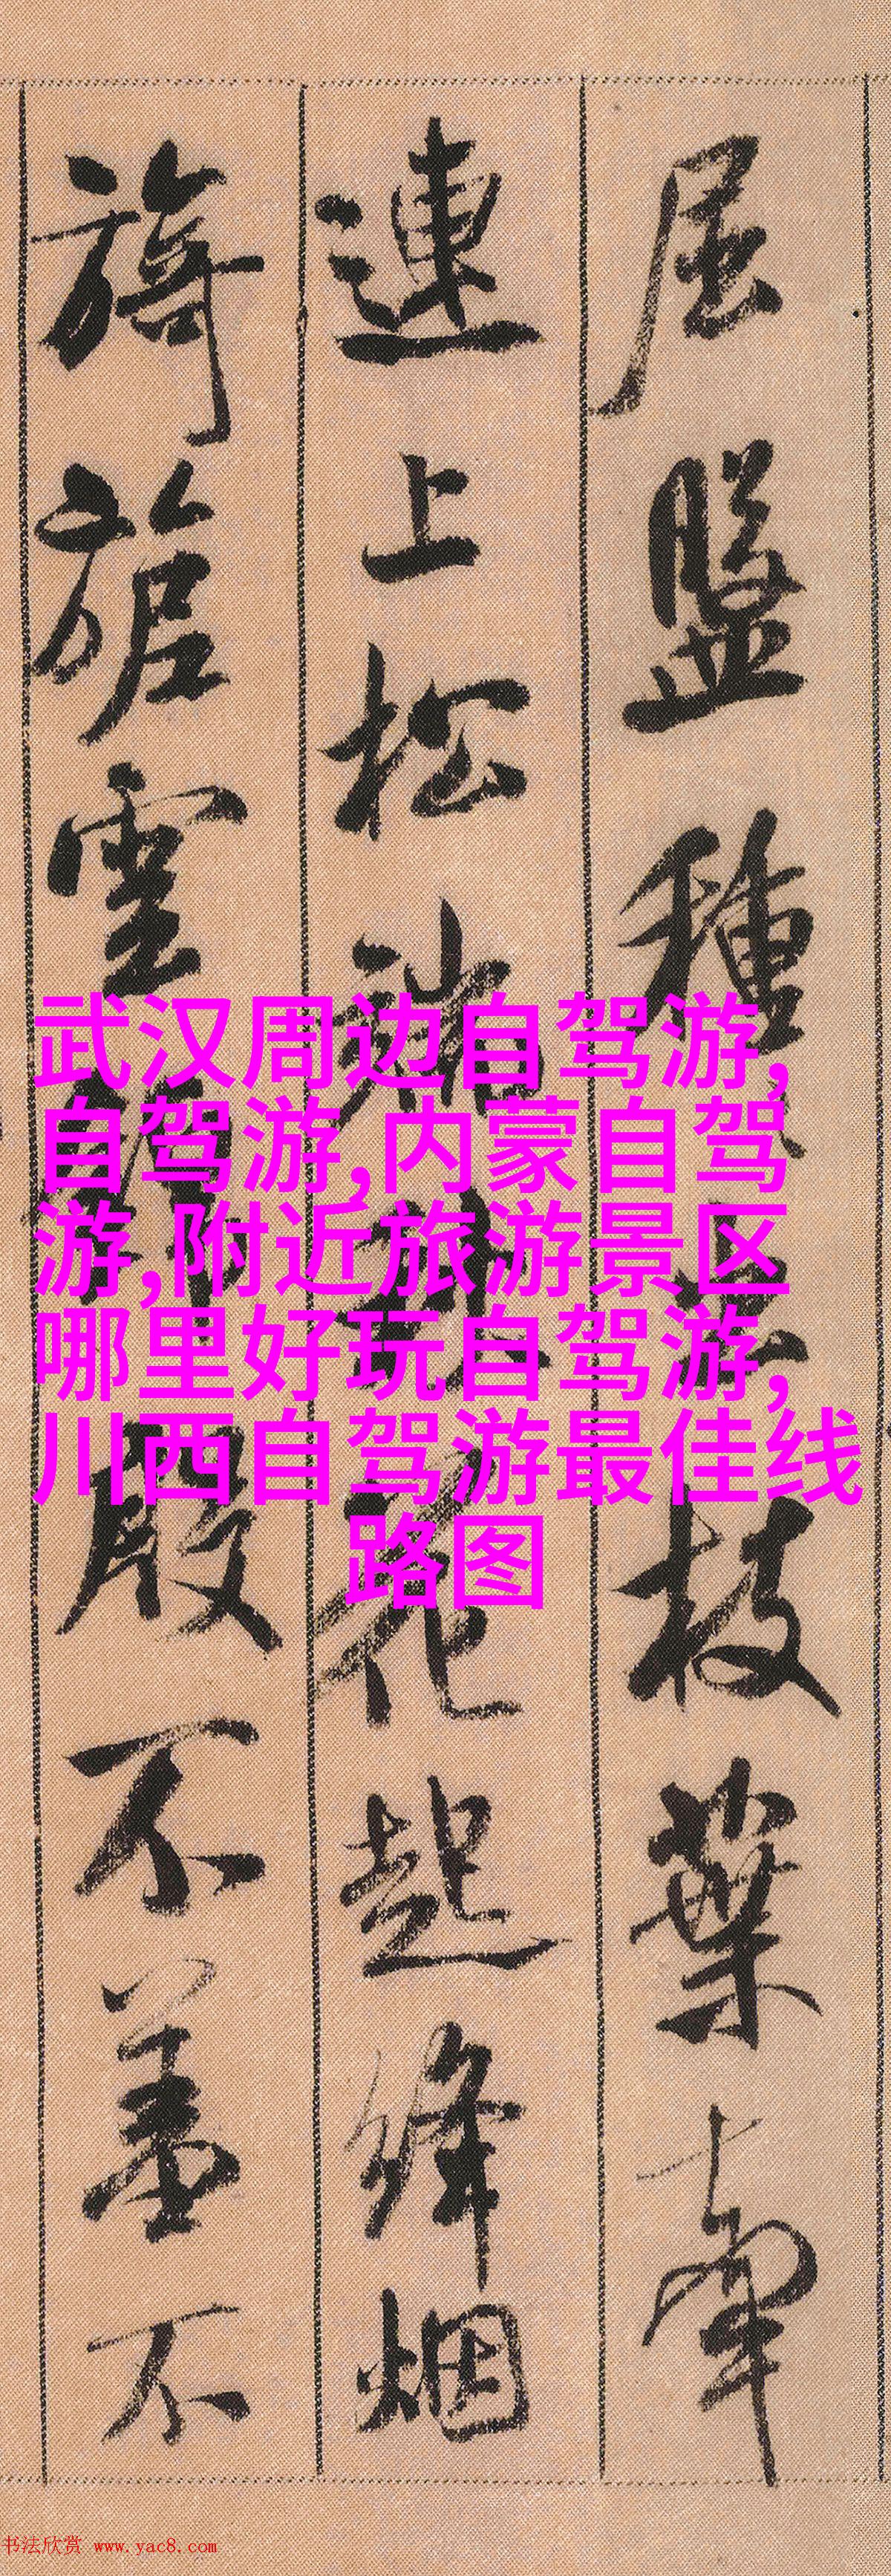 屈盤種出枝葉牽
連上松端秋花起絳烟
旖旎雲錦殷不羞不
武汉周边自驾游,
自驾游,内蒙自驾
游,附近旅游景区
哪里好玩自驾游,
川西自驾游最佳线
路图
书法欣赏 www.yac8.com